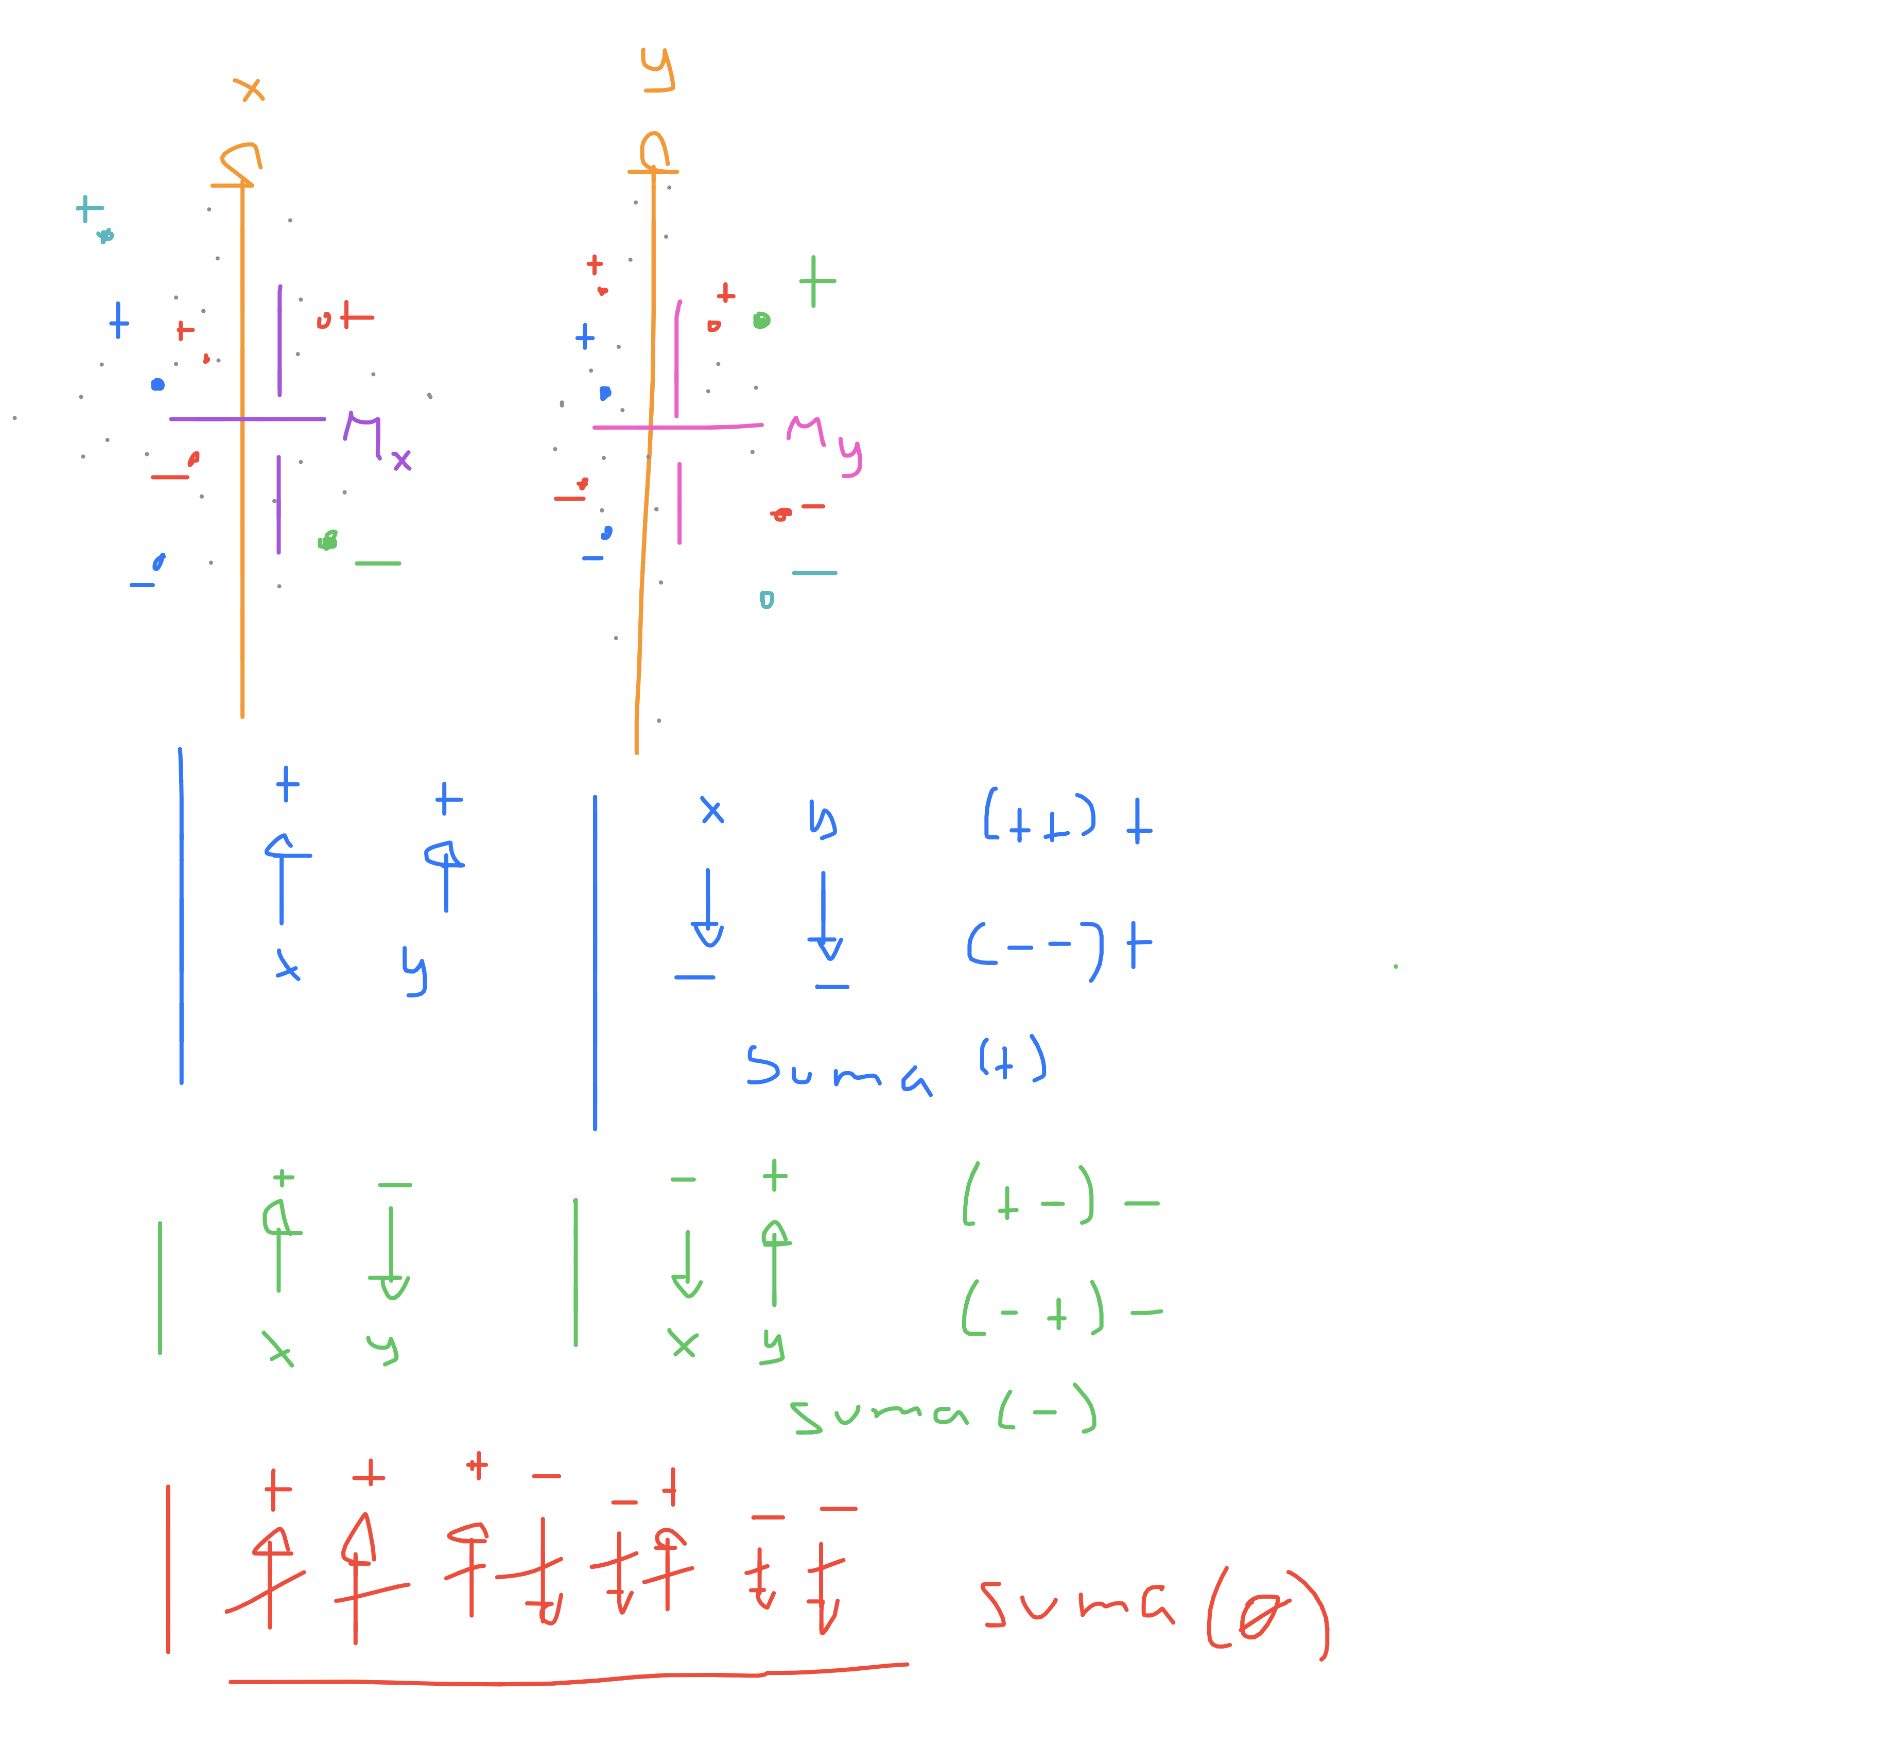 x y
+
+ + +
+ + + +
M x M y
- - -
- - - -
+ + x y (++) +
x y - - (--) +
Suma (+)
+ - - + (+-) -
x y x y (-+) -
suma (-)
+ + + - - + - -
suma (0)